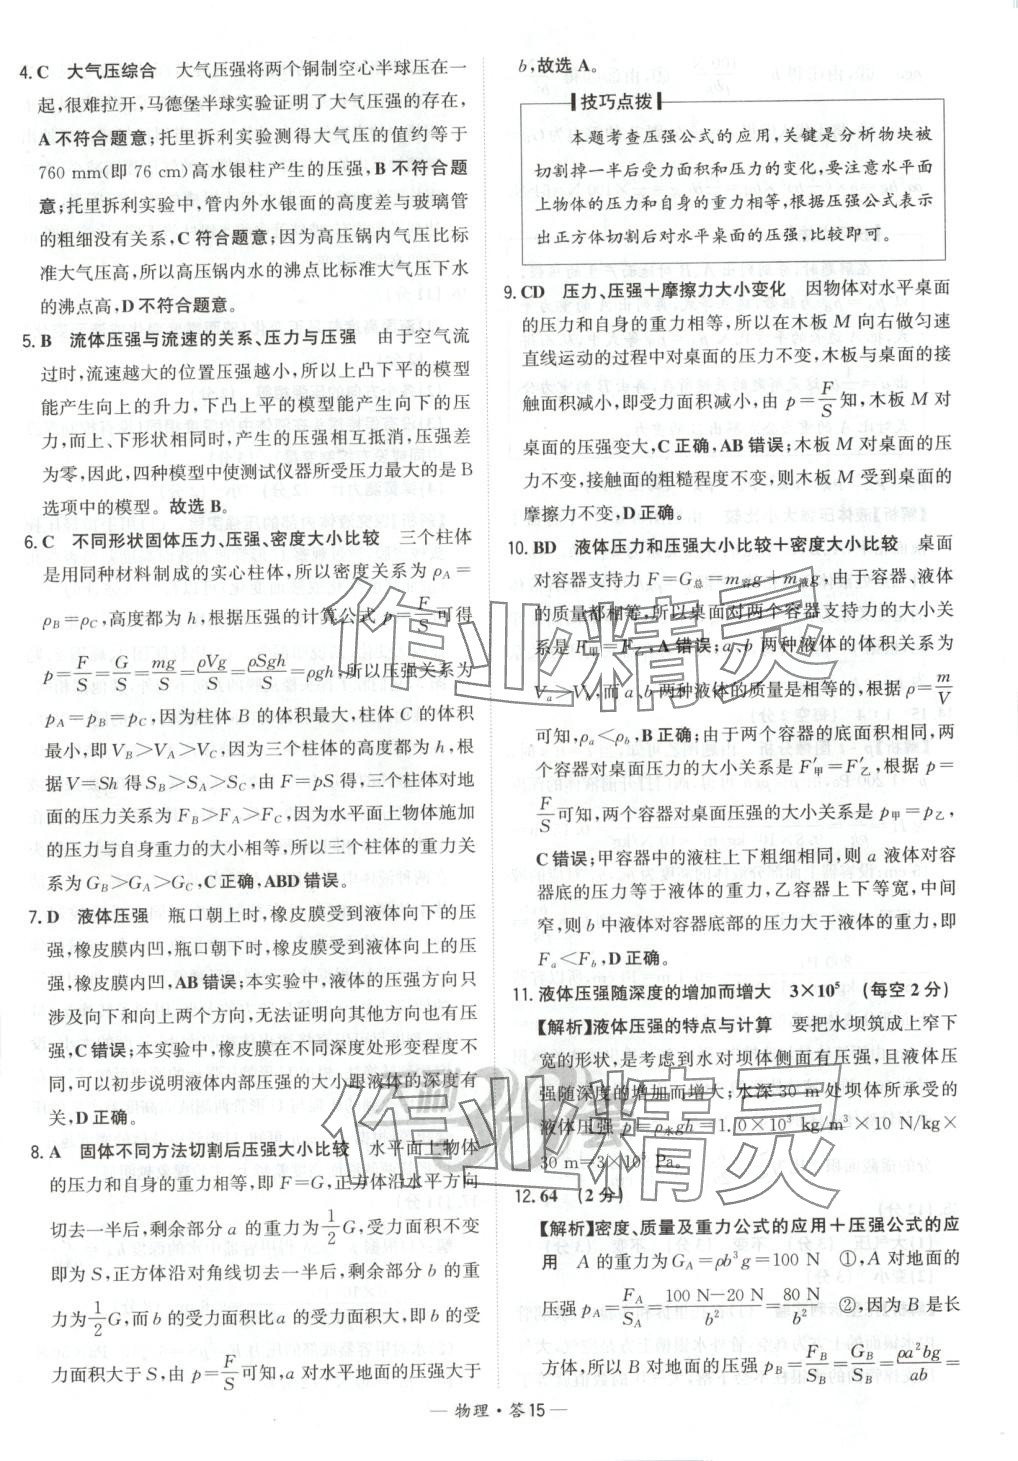 4. C 大气压综合 大气压强将两个铜制空心半球压在一
起,很难拉开,马德堡半球实验证明了大气压强的存在,
A 不符合题意;托里拆利实验测得大气压的值约等于
760 mm(即 76 cm)高水银柱产生的压强,B 不符合题
意;托里拆利实验中,管内外水银面的高度差与玻璃管
的粗细没有关系,C 符合题意;因为高压锅内气压比标
准大气压高,所以高压锅内水的沸点比标准大气压下水
的沸点高,D 不符合题意。
5. B 流体压强与流速的关系、压力与压强 由于空气流
过时,流速越大的位置压强越小,所以上凸下平的模型
能产生向上的升力,下凸上平的模型能产生向下的压
力,而上、下形状相同时,产生的压强相互抵消,压强差
为零,因此,四种模型中使测试仪器所受压力最大的是 B
选项中的模型。故选 B。
6. C 不同形状固体压力、压强、密度大小比较 三个柱体
是用同种材料制成的实心柱体,所以密度关系为 ρA=
ρB=ρC,高度都为 h,根据压强的计算公式 p=F/S可得
p=F/S=G/S=mg/S=ρVg/S=ρSgh/S=ρgh,所以压强关系为
pA=pB=pC,因为柱体 B 的体积最大,柱体 C 的体积
最小,即 VB>VA>VC,因为三个柱体的高度都为 h,根
据 V=Sh 得 SB>SA>SC,由 F=pS 得,三个柱体对地
面的压力关系为 FB>FA>FC,因为水平面上物体施加
的压力与自身重力的大小相等,所以三个柱体的重力关
系为 GB>GA>GC,C 正确,ABD 错误。
7. D 液体压强 瓶口朝上时,橡皮膜受到液体向下的压
强,橡皮膜内凹,瓶口朝下时,橡皮膜受到液体向上的压
强,橡皮膜内凹,AB 错误;本实验中,液体的压强方向只
涉及向下和向上两个方向,无法证明向其他方向也有压
强,C 错误;本实验中,橡皮膜在不同深度处形变程度不
同,可以初步说明液体内部压强的大小跟液体的深度有
关,D 正确。
8. A 固体不同方法切割后压强大小比较 水平面上物体
的压力和自身的重力相等,即 F=G,正方体沿水平方向
切去一半后,剩余部分 a 的重力为1/2G,受力面积不变
即为 S,正方体沿对角线切去一半后,剩余部分 b 的重
力为1/2G,而 b 的受力面积比 a 的受力面积大,即 b 的受
力面积大于 S,由 p=F/S可知,a 对水平地面的压强大于
b,故选 A。
技巧点拨
本题考查压强公式的应用,关键是分析物块被
切割掉一半后受力面积和压力的变化,要注意水平面
上物体的压力和自身的重力相等,根据压强公式表示
出正方体切割后对水平桌面的压强,比较即可。
9. CD 压力、压强+摩擦力大小变化 因物体对水平桌面
的压力和自身的重力相等,所以在木板 M 向右做匀速
直线运动的过程中对桌面的压力不变,木板与桌面的接
触面积减小,即受力面积减小,由 p=F/S知,木板 M 对
桌面的压强变大,C 正确,AB 错误;木板 M 对桌面的压
力不变,接触面的粗糙程度不变,则木板 M 受到桌面的
摩擦力不变,D 正确。
10. BD 液体压力和压强大小比较+密度大小比较 桌面
对容器支持力 F=G总=m容g+m液g,由于容器、液体
的质量都相等,所以桌面对两个容器支持力的大小关
系是 F甲=F乙,A 错误;a、b 两种液体的体积关系为
Va>Vb,而 a、b 两种液体的质量是相等的,根据 ρ=m/V
可知,ρa<ρb,B 正确;由于两个容器的底面积相同,两
个容器对桌面的压力大小关系是 F′甲=F′乙,根据 p=
F/S可知,两个容器对桌面压强的大小关系是 p甲=p乙,
C 错误;甲容器中的液柱上下粗细相同,则 a 液体对容
器底的压力等于液体的重力,乙容器上下等宽,中间
窄,则 b 中液体对容器底部的压力大于液体的重力,即
Fa<Fb,D 正确。
11. 液体压强随深度的增加而增大 3×10⁵ (每空 2 分)
【解析】液体压强的特点与计算 要把水坝筑成上窄下
宽的形状,是考虑到水对坝体侧面有压强,且液体压
强随深度的增加而增大;水深 30 m 处坝体所承受的
液体压强 p=ρ水gh=1.0×10³ kg/m³×10 N/kg×
30 m=3×10⁵ Pa。
12. 64 (2 分)
【解析】密度、质量及重力公式的应用+压强公式的应
用 A 的重力为 GA=ρb³g=100 N ①,A 对地面的
压强 pA=FA/SA=(100 N-20 N)/b²=80 N/b² ②,因为 B 是长
方体,所以 B 对地面的压强 pB=FB/SB=GB/SB=ρa²bg/ab=
物理·答15
作业精灵
作业精灵